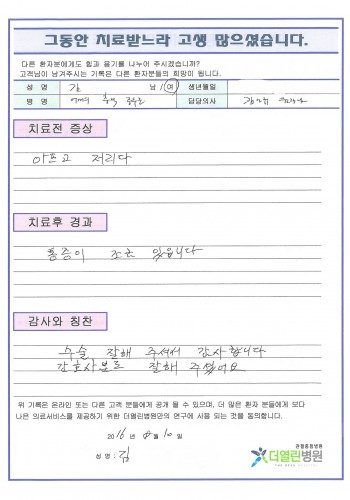 그동안 치료받느라 고생 많으셨습니다.
다른 환자분에게도 힘과 용기를 나누어 주시겠습니까?
고객님이 남겨주시는 기록은 다른 환자분들의 희망이 됩니다.
성 명 김 남 / 여 생년월일
병 명 담당의사 김
치료전 증상
아프고 저리다
치료후 경과
통증이 조금 있습니다
감사와 칭찬
수술 잘해 주셔서 감사합니다
간호사분도 잘해 주셨어요
위 기록은 온라인 또는 다른 고객 분들에게 공개 될 수 있으며, 더 많은 환자 분들에게 보다
나은 의료서비스를 제공하기 위한 더열린병원만의 연구에 사용 되는 것을 동의합니다.
2016 년 8 월 10 일
성 명 : 김
관절중점병원
더열린병원
THE OPEN HOSPITAL